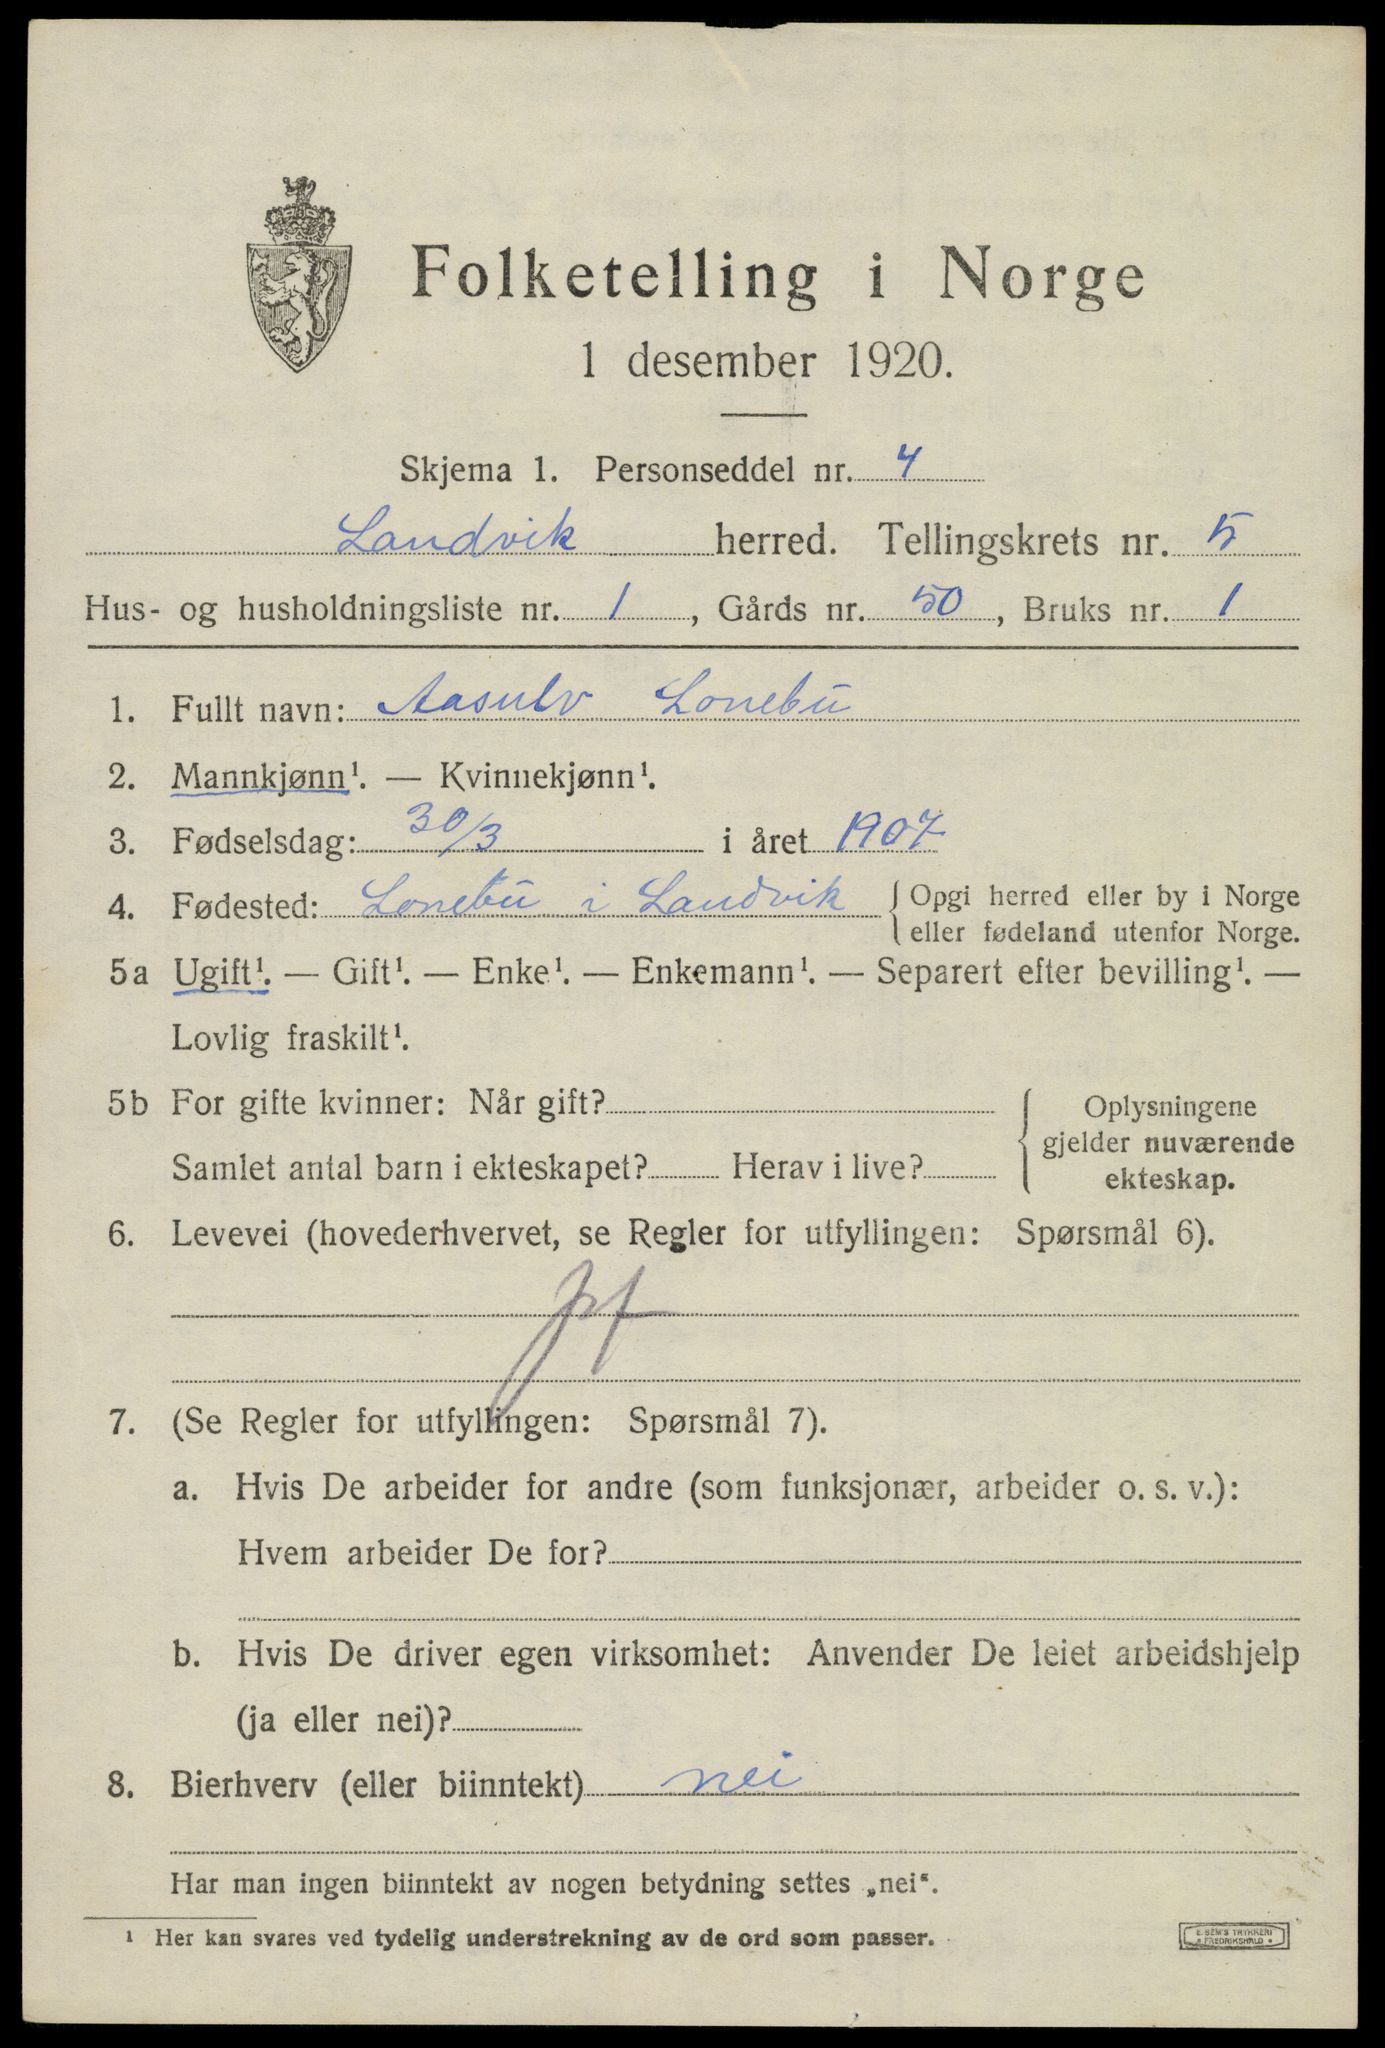 Folketelling i Norge
1 desember 1920.
Skjema 1. Personseddel nr. 4
Landvik herred. Tellingskrets nr. 5
Hus- og husholdningsliste nr. 1, Gårds nr. 50, Bruks nr. 1
1. Fullt navn: Aasulv Lonebu
2. Mannkjønn¹. — Kvinnekjønn¹.
3. Fødselsdag: 30/3 i året 1907
4. Fødested: Lonebu i Landvik { Opgi herred eller by i Norge
eller fødeland utenfor Norge.
5a Ugift¹. — Gift¹. — Enke¹. — Enkemann¹. — Separert efter bevilling¹. —
Lovlig fraskilt¹.
5b For gifte kvinner: Når gift? { Oplysningene
gjelder nuværende
Samlet antal barn i ekteskapet? Herav i live? ekteskap.
6. Levevei (hovederhvervet, se Regler for utfyllingen: Spørsmål 6).
7. (Se Regler for utfyllingen: Spørsmål 7).
a. Hvis De arbeider for andre (som funksjonær, arbeider o. s. v.):
Hvem arbeider De for?
b. Hvis De driver egen virksomhet: Anvender De leiet arbeidshjelp
(ja eller nei)?
8. Bierhverv (eller biinntekt) nei
Har man ingen biinntekt av nogen betydning settes „nei“.
¹ Her kan svares ved tydelig understrekning av de ord som passer.
E. SEM'S TRYKKERI
FREDRIKSHALD